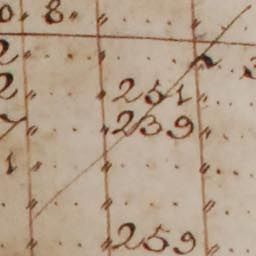 0. 8. "
2 " . . "
2 " . . " 251 " . .
7 " . . " 239 " . .
1 " . . " . . . " . .
" . . " . . . " . .
" . . " 259 " . .